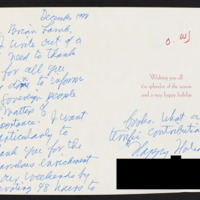 December 1998
Brian Lamb,
I write out of a
need to thank
for all you
do to inform
Sovereign people
Matters of
importance. I want
particularly to
thank you for the
enrichment
our weekends by
48 hours to
O. W)
Wishing you all
the splendor of the season
and a very happy holiday.
books. What a
terrific contribution
Happy